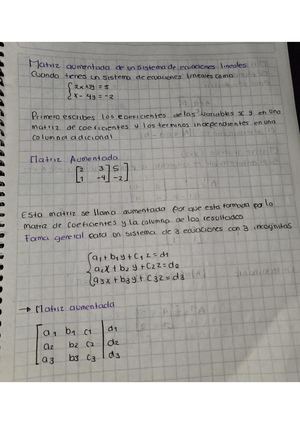 Matriz aumentada de un sistema de ecuaciones lineales
Cuando tienes un sistema de ecuaciones lineales como:
{2x+3y=5
{x-4y=-2
Primero escribes los coeficientes de las variables x y en una
matriz de coeficientes y los terminos independientes en una
columna adicional
Matriz Aumentada
[2 3 | 5]
[1 -4 | -2]
Esta matriz se llama aumentada por que esta formada por la
matriz de coeficientes y la columna de los resultados
Forma general para un sistema de 3 ecuaciones con 3 incognitas
{a1+b1y+C1z=d1
{a2x+b2y+C2z=d2
{a3x+b3y+C3z=d3
→ Matriz aumentada
[a1 b1 c1 | d1
a2 b2 c2 | d2
a3 b3 c3 | d3